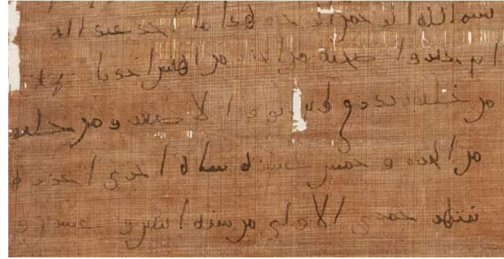 بسم الله الرحمن الرحيم هذا ما اخذ عبد الله
ابن جبر واصحبه من الجزر من اهنس اخذنا
من خليفه تدراق ابن ابو قير الاصغر ومن خليفه
من الجزر وخمس عشره شاه اخرى اجزرها
شهر جمدى الاولى من سنه اثنين وعشرين و